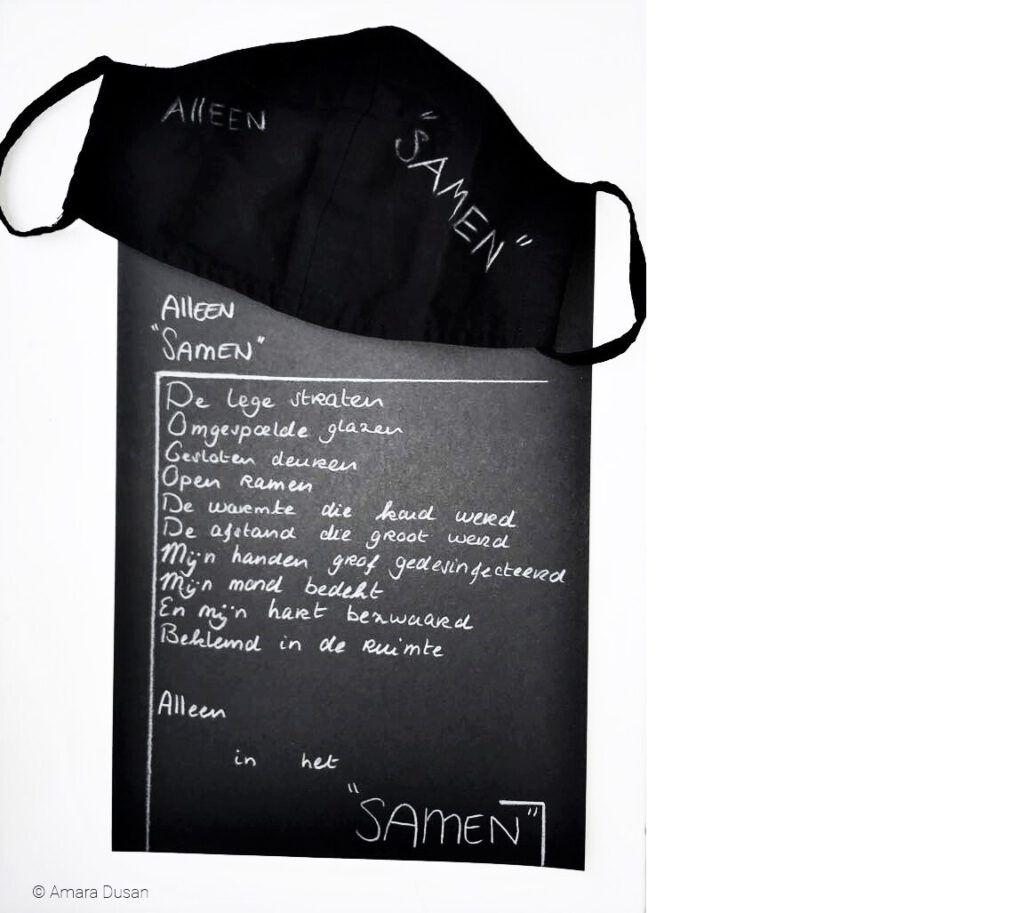 AllEEN
"SAMEN"
AllEEN
"SAMEN"
De lege straten
Omgespoelde glazen
Gesloten deuren
Open ramen
De warmte die koud werd
De afstand die groot werd
Mijn handen grof gedesinfecteerd
Mijn mond bedekt
En mijn hart bezwaard
Beklemd in de ruimte
Alleen
in het
"SAMEN"
© Amara Dusan